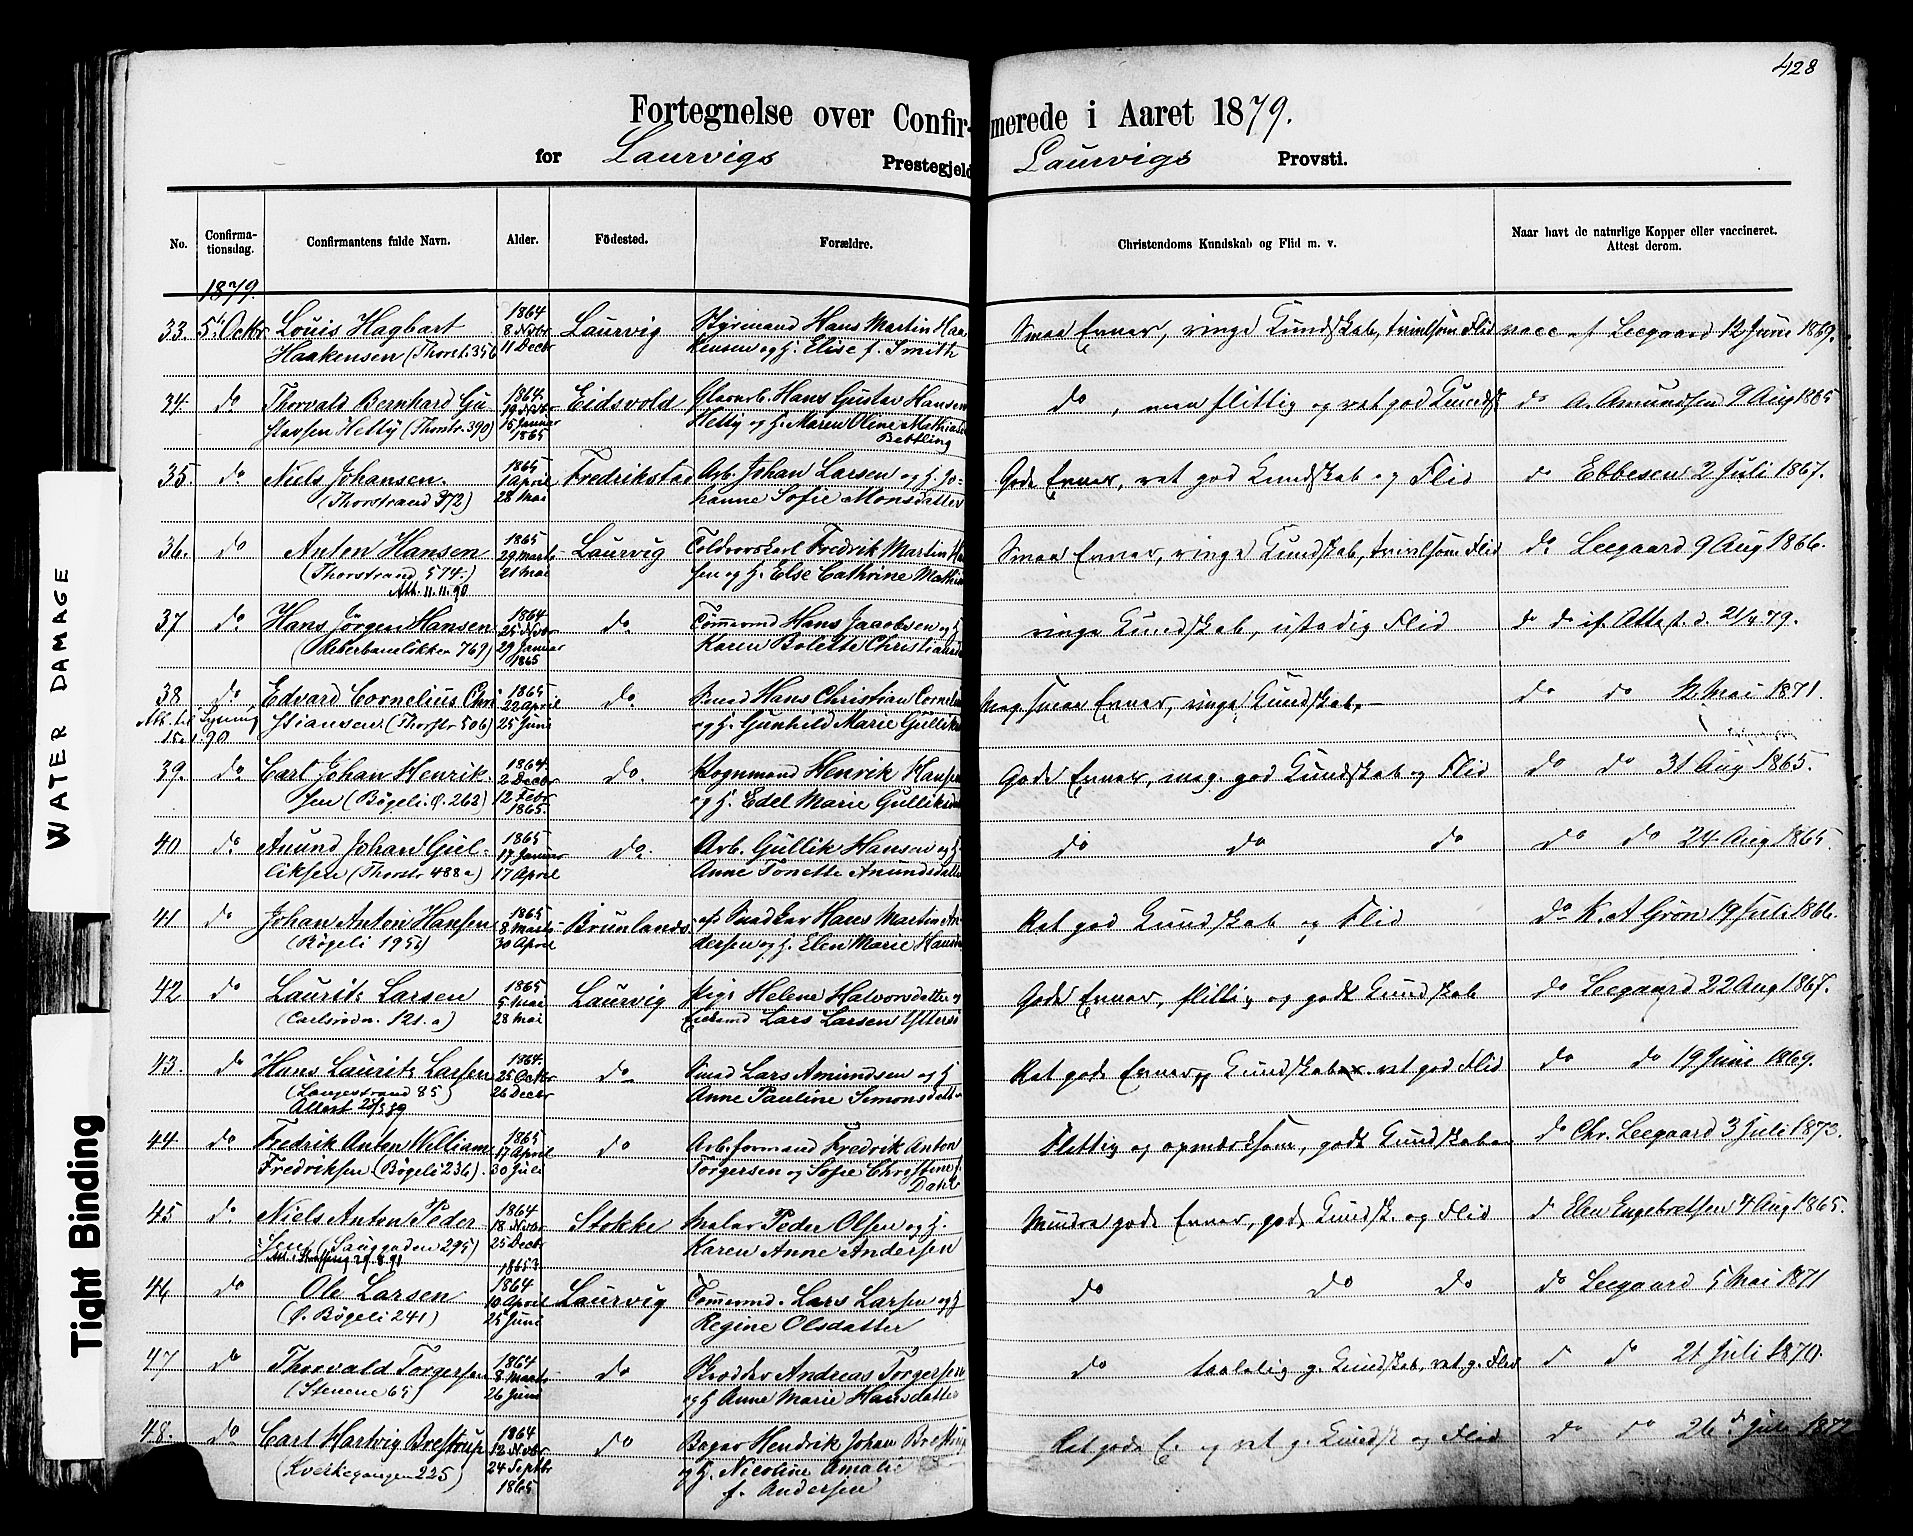 428
Fortegnelse over Confirmerede i Aaret 1879.
for Laurvigs Prestegjeld Laurvigs Provsti.
No. Confirmationsdag. Confirmantens fulde Navn. Alder. Födested. Forældre. Christendoms Kundskab og Flid m. v. Naar havt de naturlige Kopper eller vaccineret. Attest derom.
1879.
33. 5t Octbr Louis Hagbart 1864 8 Novbr Laurvig Styrmand Hans Martin Haa Smaa Evner, ringe Kundskab, tvivlsom Flid vacc af Leegaard 12 Juni 1869.
Haakensen (Thorst. 356 11 Decbr kensen og H. Elise f. Smith
34. do Thorvald Bernhard Gu 1864. 19 Novbr Eidsvold Glasarb. Hans Gustav Hansen do, men flittig og ret god Kundsk do A. Amundsen 9 Aug 1865
stavsen Hetty (Thorstr. 390) 15 Januar 1865 Hetty og H. Maren Oline Mathiasd
35. do Niels Johansen. 1865 1 April Fredrikstad Arb. Johan Larsen og H. Jo- Gode Evner, ret god Kundskab og Flid do Ebbesen 2 Juli 1867.
(Thorstrand 372) 28 Mai hanne Sofie Monsdatter
36. do Anton Hansen 1865 29 Marts Laurvig Toldvorskarl Fredrik Martin Han Smaa Evner, ringe Kundskab, tvivlsom Flid do Leegaard 9 Aug 1866.
(Thorstrand 574.) 21 Mai sen og H. Else Cathrine Mathia
Att. 11.11.90
37 do Hans Jörgen Hansen 1864 25 Novbr do. Tømmermd Hans Jacobsen og H ringe Kundskab, ustadig Flid do do if. Attest d. 21/4 79.
(Reberbaneløkken 769) 29 Januar 1865 Karen Bolette Christiansd
38 do Edvard Cornelius Chri 1865 22 April do. Smed Hans Christian Corneliu Meg. smaa Evner, ringe Kundskab.- do do 12 Mai 1871.
stiansen (Thorstr 506) 25 Juni og H. Gunhild Marie Gulliks
15. 1. 90
39. do Carl Johan Henrik- 1864. 2 Decbr do. Vognmand Henrik Hansen Gode Evner, meg. god Kundskab og Flid do do 31 Aug 1865.
sen (Bøgeli Ø. 262) 12 Febr 1865. og H. Edel Marie Gulliksd
40 do Anund Johan Gul- 1865 17 Januar do. Arb. Gullik Hansen og H. do do do do do 24 Aug 1865.
liksen (Thorstr 488a) 17 April Anne Tonette Anundsdatter
41 do Johan Anton Hansen 1865 8 Marts Brunlanäs afd. Snedker Hans Martin An Ret god Kundskab og Flid do K. A Grøn 19 Juli 1866.
(Bøgeli 195) 30 April dersen og H. Elen Marie Hansen
42 do Laurits Larsen 1865 5 Mai Laurvig Pige Helene Halvorsdatter og Gode Evner, flittig og godt Kundskab do Leegaard 22 Aug 1867.
(Carlsrodn. 121.a) 28 Mai Lars Larsen Ytters
43. do Hans Laurits Larsen 1864. 25 Octbr do Smed Lars Amundsen og H Ret gode Evner og Kundskaber ret god Flid do do 19 Juni 1869.
(Langestrand 85) 26 Decbr Anne Pauline Simonsdatter
Attest 25/5 89
44. do Fredrik Anton William 1865 17 April do Arb.formand Fredrik Anton Flittig og opmærksom, gode Kundskaber do Chr. Leegaard 3 Juli 1873.
Fredriksen (Bøgeli 236). 30 Juli Torgersen og Sofie Christine f. Dahl
45 do Niels Anton Peder 1864 18 Novbr Stokke Maler Peder Olsen og H. Mindre gode Evner, gode Kundsk. og Flid do Elen Engebretsen 4 Aug 1865.
sen (Sauggaden 295) 25 Decbr Karen Anne Andersen
46 do Ole Larsen 1864 10 April Laurvig Tømmermd. Lars Larsen og H do do do do Leegaard 5 Mai 1871
(Ø. Bøgeli 241) 25 Juni Regine Olsdatter
47 do Thorvald Torgersen 1864 8 Marts do Rodder Andreas Torgersen do taalelig g. Kundskab, ret g. Flid do do 21 Juli 1870.
(Stenene 65) 26 Juni og H. Anne Marie Hansdatter
48. do Carl Hartvig Brestrup 1864 12 Novbr do Bager Hendrik Johan Brestrup Ret gode E. og ret g. Kundsk og Flid do do 26 Juli 1872
(Kverkegangen 225) 24 Septbr 1865 og H. Nicoline Amalie
f. Andersen
WATER DAMAGE
Tight Binding